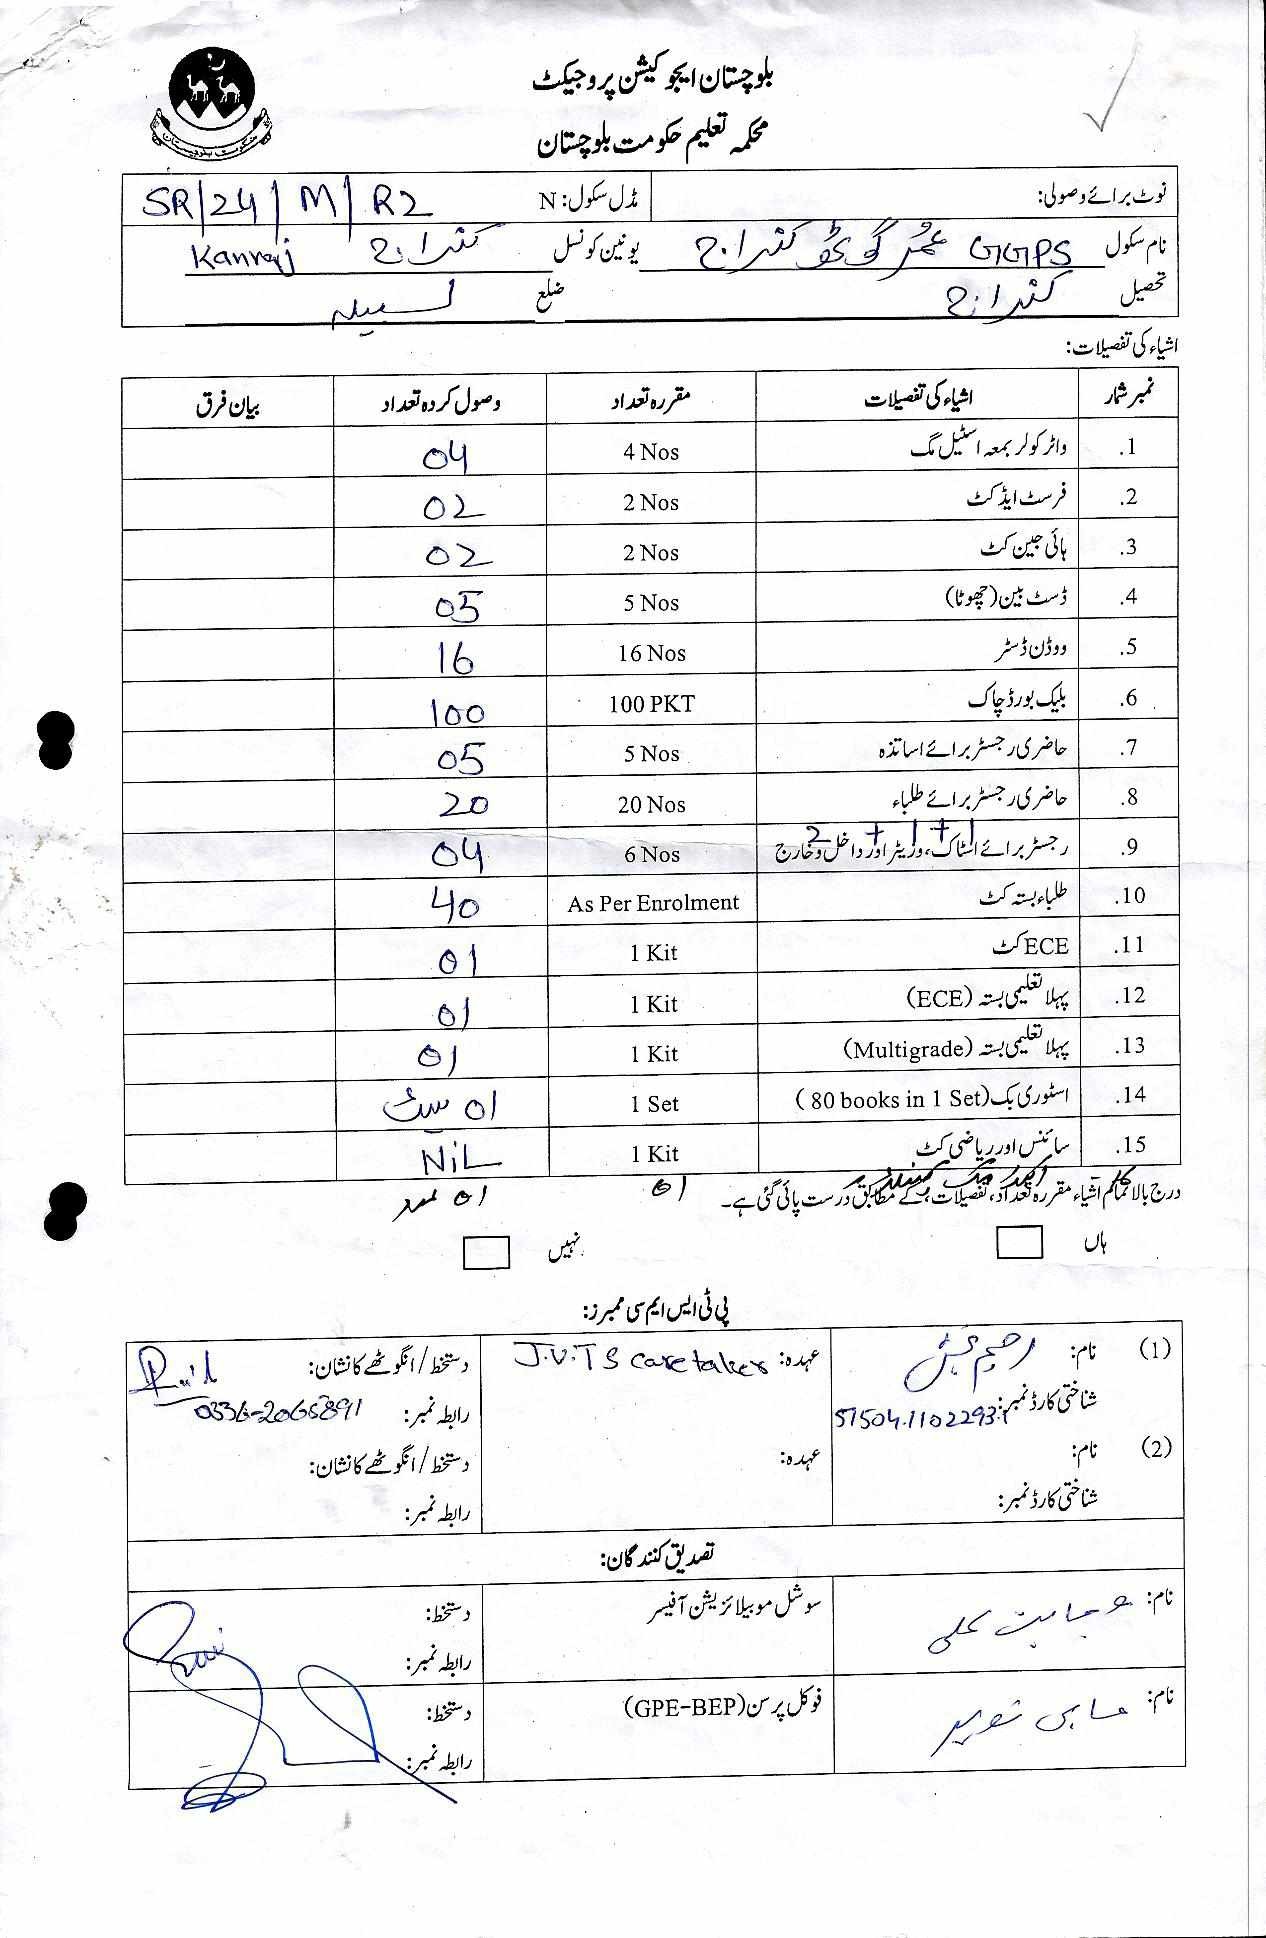 بلوچستان ایجوکیشن پروجیکٹ
محکمہ تعلیم حکومت بلوچستان
نوٹ برائے وصولی: مڈل سکول: N SR/24/M/R2
نام سکول GGPS عمر گوٹھ کنراج یونین کونسل کنراج Kanraj
تحصیل کنراج ضلع لسبیلہ
اشیاء کی تفصیلات:
نمبر شمار اشیاء کی تفصیلات مقررہ تعداد وصول کردہ تعداد بیان فرق
1. واٹر کولر بمعہ اسٹیل مگ 4 Nos 04
2. فرسٹ ایڈ کٹ 2 Nos 02
3. ہائی جین کٹ 2 Nos 02
4. ڈسٹ بین (چھوٹا) 5 Nos 05
5. ووڈن ڈسٹر 16 Nos 16
6. بلیک بورڈ چاک 100 PKT 100
7. حاضری رجسٹر برائے اساتذہ 5 Nos 05
8. حاضری رجسٹر برائے طلباء 20 Nos 20
9. رجسٹر برائے اسٹاک، وزیٹر اور داخل وخارج 6 Nos 04
1 + 1 + 2
10. طلباء بستہ کٹ As Per Enrolment 40
11. ECE کٹ 1 Kit 01
12. پہلا تعلیمی بستہ (ECE) 1 Kit 01
13. پہلا تعلیمی بستہ (Multigrade) 1 Kit 01
14. اسٹوری بک (80 books in 1 Set) 1 Set 01 سیٹ
15. سائنس اور ریاضی کٹ 1 Kit NiL
01 01 عدد
درج بالا تمام اشیاء مقررہ تعداد، تفصیلات کے مطابق درست پائی گئی ہے۔
ہاں نہیں
پی ٹی ایس ایم سی ممبرز:
(1) نام: رحیم بخش عہدہ: J.V.T S caretaker دستخط/انگوٹھے کا نشان:
شناختی کارڈ نمبر: 51504.1102293.1 رابطہ نمبر: 0336-2065891
(2) نام: عہدہ: دستخط/انگوٹھے کا نشان:
شناختی کارڈ نمبر: رابطہ نمبر:
تصدیق کنندگان:
نام: وجاہت علی سوشل موبیلائزیشن آفیسر دستخط:
رابطہ نمبر:
نام: فوکل پرسن (GPE-BEP) دستخط:
رابطہ نمبر: